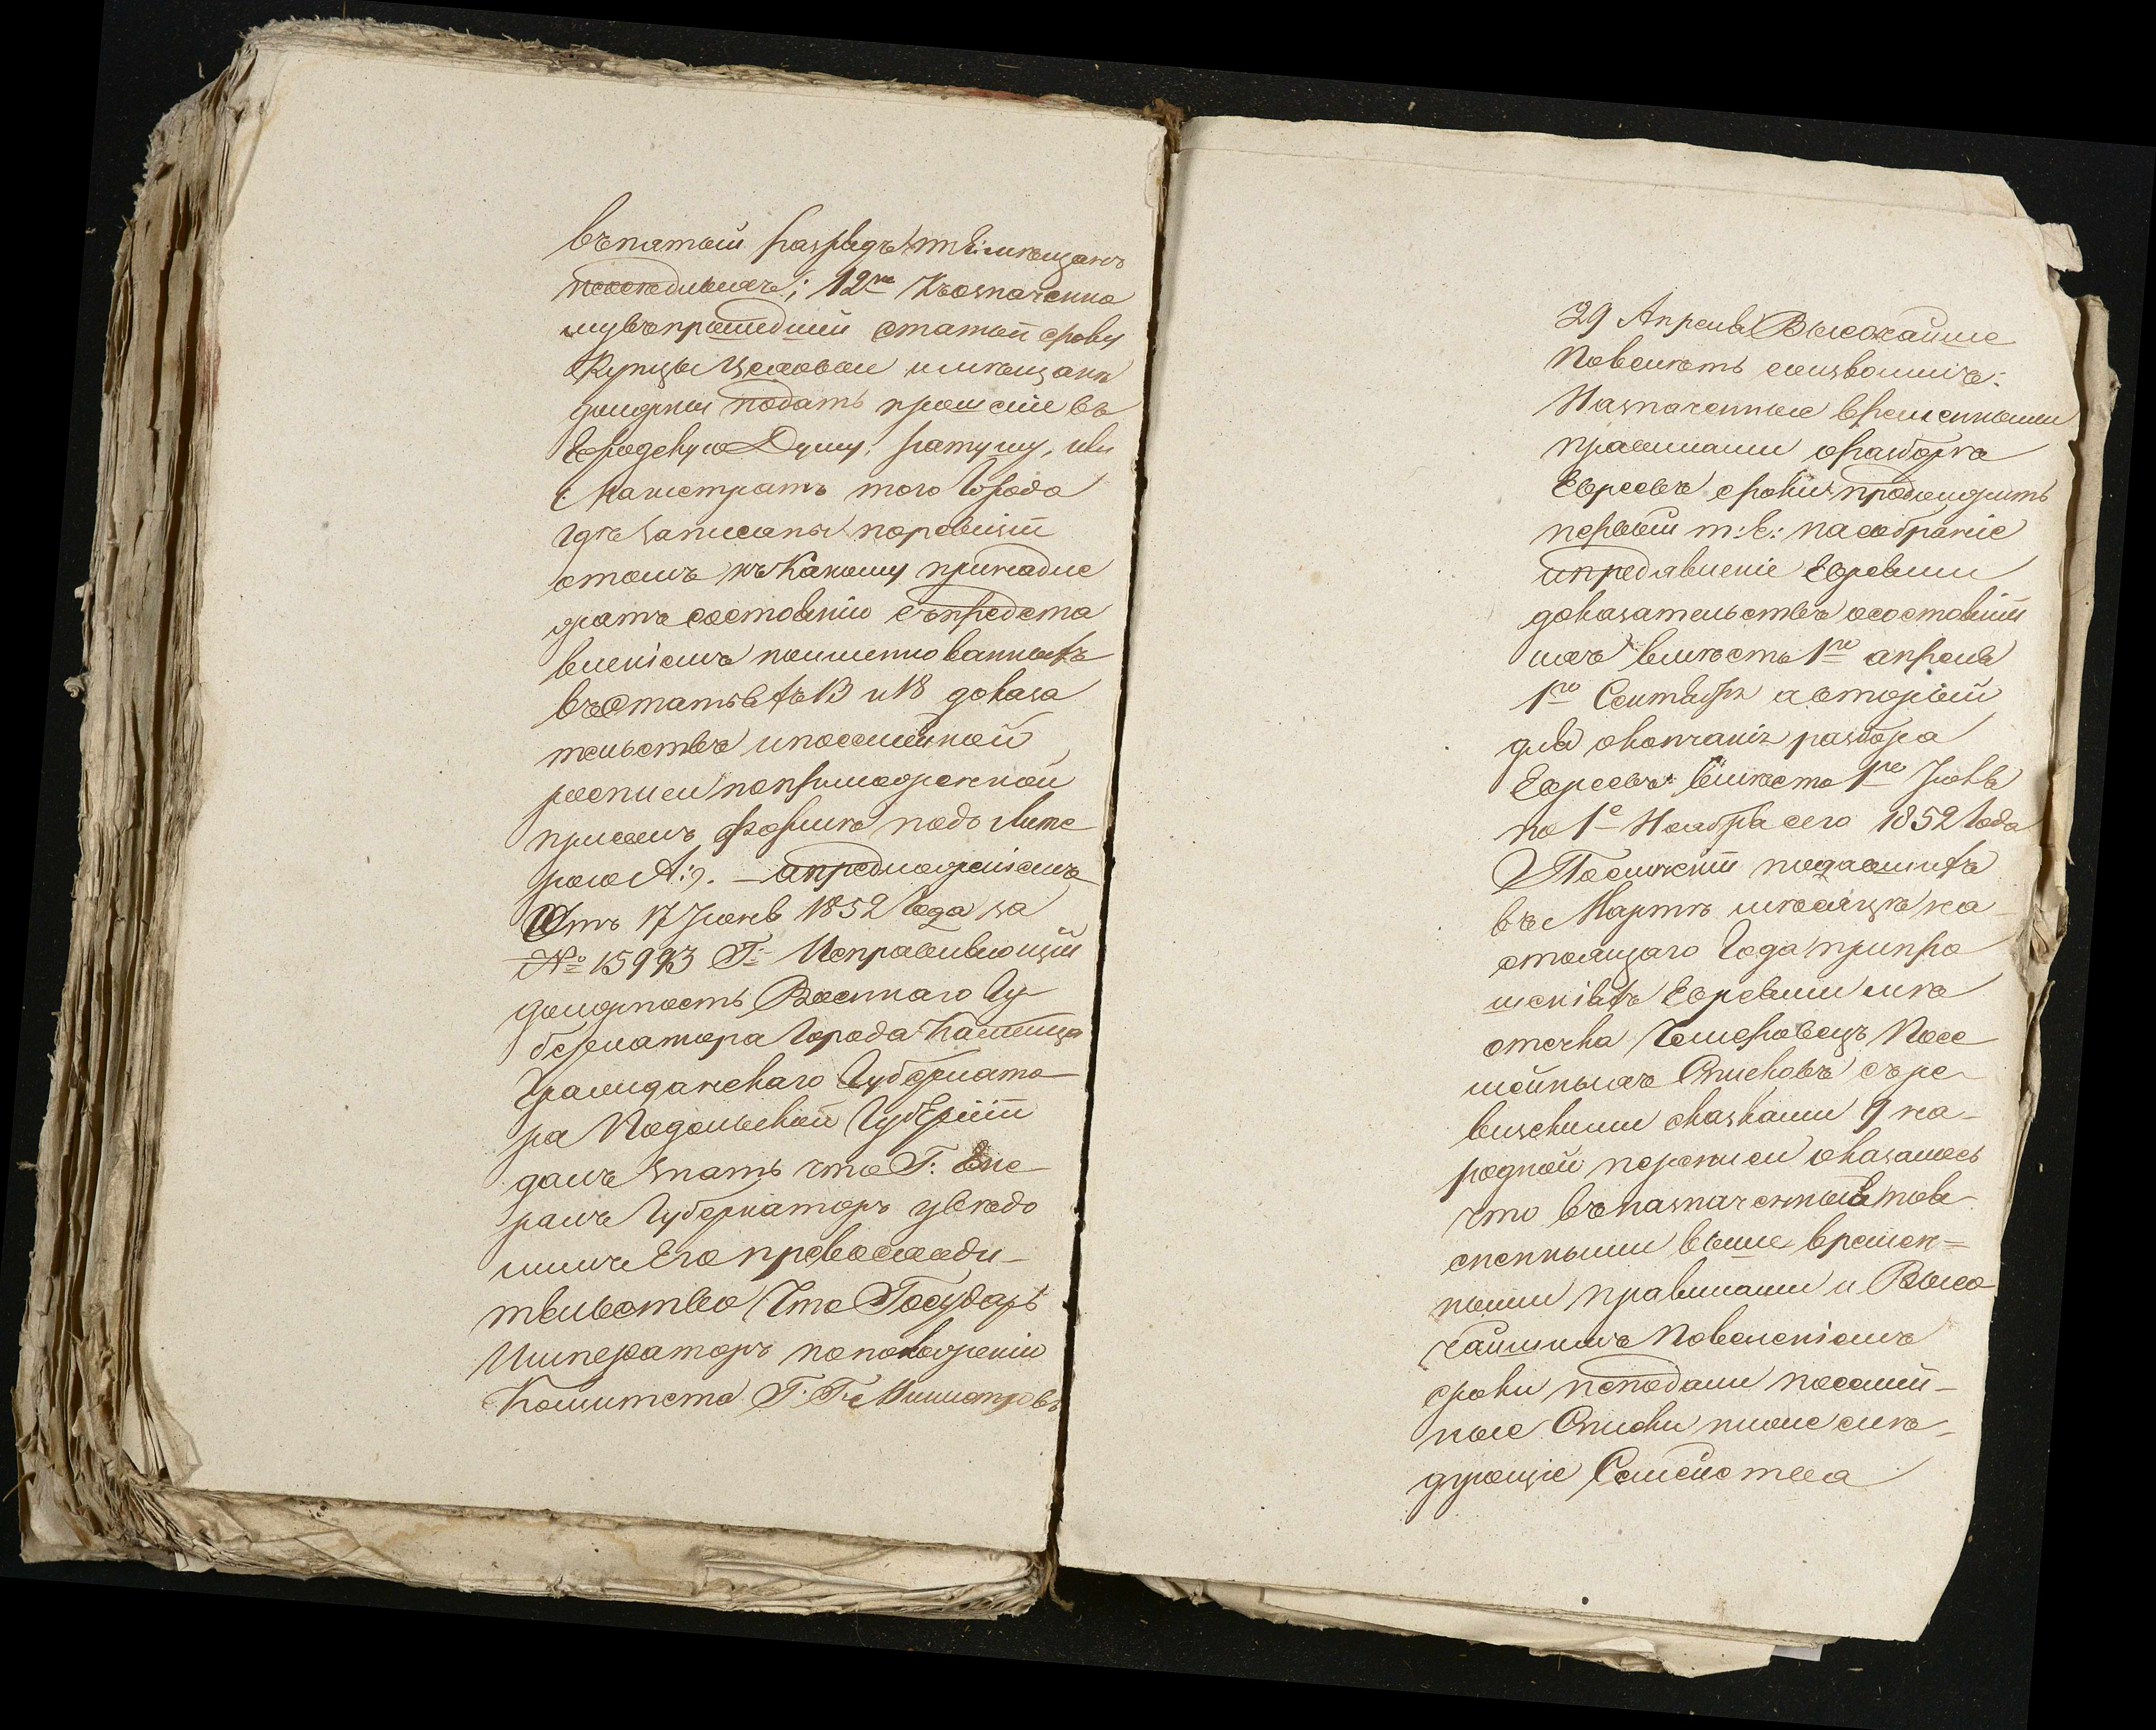 въ пятый разрядъ т: е: мѣщанъ
неосѣдлыхъ; 12е Къ означенно
му въ прошедшей статьи сроку
Купцы Цеховые и мѣщане
должны подать прошение въ
Городскую Думу, ратушу, или
Магистратъ того Города
гдѣ записаны по ревизіи
о томъ къ какому принадле
жатъ состоянію съ предста
вленіемъ поименованныхъ
въ Статьяхъ 13 и 18 доказа
тельствъ и посемейной
росписи по приложенной
при семъ формѣ подъ Лите
рою А:). — а предложеніемъ
Отъ 17 Іюня 1852 Года за
№ 15993 Г. Исправляющій
должность Военнаго Гу
бернатора Города Каменца
Гражданскаго Губернато
ра Подольской Губерніи
далъ знать что Г: Гене
ралъ Губернаторъ увѣдо
милъ Его превосходи
тельство Что Государь
Императоръ по положенію
Комитета Г. Г. Министровъ
29 Апреля Высочайше
Повелѣть соизволилъ:
Назначенные временными
правилами о разборѣ
Евреевъ сроки продолжить
первый т: е: на собраніе
и предъявленіе Евреями
доказательствъ о состояніи
ихъ вмѣсто 1го апреля
1го Сентября а вторый
для окончанія разбора
Евреевъ вмѣсто 1го Іюля
по 1е Ноября сего 1852 Года
По сличеніи подаваемыхъ
въ Мартѣ мѣсяцѣ на
стоящаго Года при про
шеніяхъ Евреями мѣ
стечка Чемеровецъ Посе
мейныхъ Списковъ съ ре
визскими сказками 9 на
родной переписи оказалось
что въ назначенный пове
ленными выше времен=
ными правилами и Высо
чайшимъ Повеленіемъ
сроки неподали посемей
ные Списки ниже слѣ
дующіе Семейства